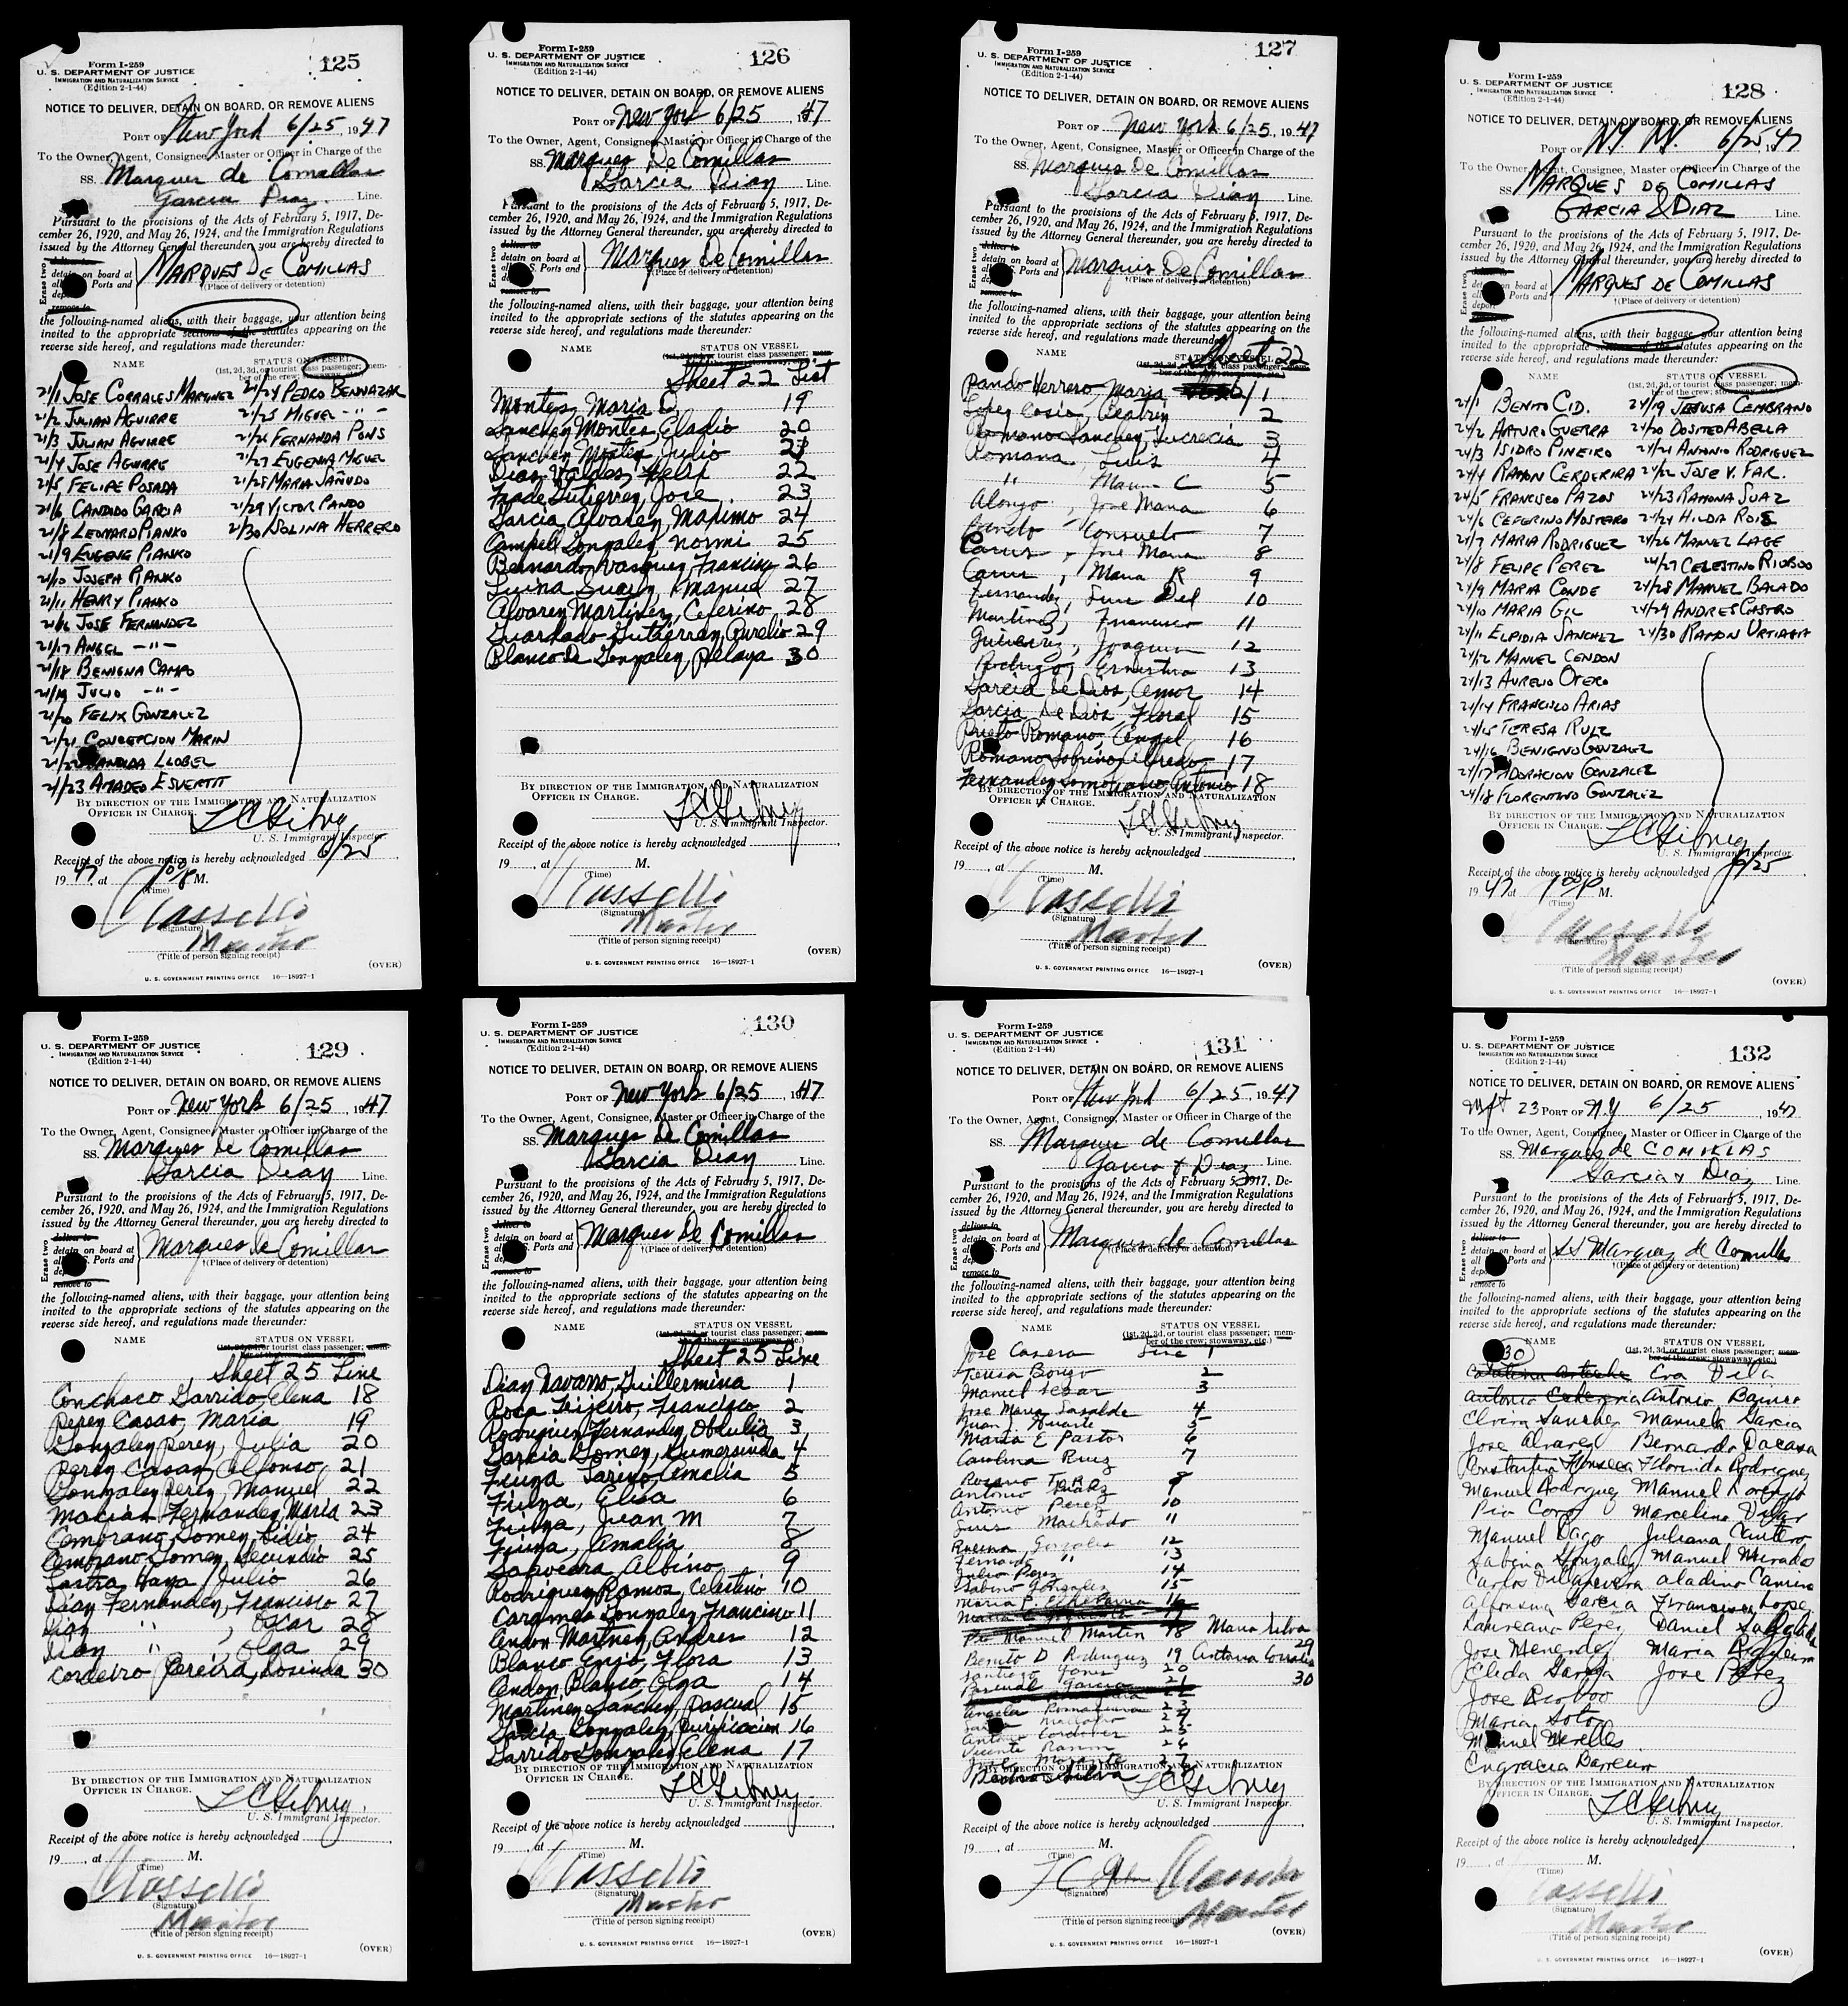 Form I-259
U. S. DEPARTMENT OF JUSTICE
IMMIGRATION AND NATURALIZATION SERVICE
(Edition 2-1-44)
125
NOTICE TO DELIVER, DETAIN ON BOARD, OR REMOVE ALIENS
PORT OF New York 6/25, 1947
To the Owner, Agent, Consignee, Master or Officer in Charge of the
SS. Marques de Comallas
Garcia Diaz. Line.
Pursuant to the provisions of the Acts of February 5, 1917, De-
cember 26, 1920, and May 26, 1924, and the Immigration Regulations
issued by the Attorney General thereunder, you are hereby directed to
Erase two
deliver to
detain on board at
all Ports and
remove to
MARQUES DE COMILLAS
(Place of delivery or detention)
the following-named aliens, with their baggage, your attention being
invited to the appropriate sections of the statutes appearing on the
reverse side hereof, and regulations made thereunder:
NAME STATUS ON VESSEL
(1st, 2d, 3d, or tourist class passenger; mem-
ber of the crew; stowaway, etc.)
21/1 JOSE CORRALES MARTINEZ 21/24 PEDRO BENNAZAR
21/2 JULIAN AGUIRRE 21/25 MIGUEL -"-
21/3 JULIAN AGUIRRE 21/26 FERNANDA PONS
21/4 JOSE AGUIRRE 21/27 EUGENIA MIGUEL
21/5 FELIPE POSADA 21/28 MARIA SAÑUDO
21/6 CANDIDO GARCIA 21/29 VICTOR PANDO
21/8 LEONARD PIANKO 21/30 SOLINA HERRERO
21/9 EUGENE PIANKO
21/10 JOSEPH PIANKO
21/11 HENRY PIANKO
21/16 JOSE FERNANDEZ
21/17 ANGEL -"-
21/18 BENIGNA CAMPO
21/19 JULIO -"-
21/20 FELIX GONZALEZ
21/21 CONCEPCION MARIN
21/22 CANDIDA LLOBEL
21/23 AMADEO ESVERTIT
BY DIRECTION OF THE IMMIGRATION AND NATURALIZATION
OFFICER IN CHARGE.
U. S. Immigrant Inspector.
Receipt of the above notice is hereby acknowledged 6/25
1947, at M.
(Time)
(Signature)
Master
(Title of person signing receipt)
(OVER)
U. S. GOVERNMENT PRINTING OFFICE 16—18927-1
Form I-259
U. S. DEPARTMENT OF JUSTICE
IMMIGRATION AND NATURALIZATION SERVICE
(Edition 2-1-44)
126
NOTICE TO DELIVER, DETAIN ON BOARD, OR REMOVE ALIENS
PORT OF New York 6/25 1947
To the Owner, Agent, Consignee, Master or Officer in Charge of the
SS. Marques De Comillas
Garcia Diaz Line.
Pursuant to the provisions of the Acts of February 5, 1917, De-
cember 26, 1920, and May 26, 1924, and the Immigration Regulations
issued by the Attorney General thereunder, you are hereby directed to
Erase two
deliver to
detain on board at
all U.S. Ports and
remove to
Marques De Comillas
(Place of delivery or detention)
the following-named aliens, with their baggage, your attention being
invited to the appropriate sections of the statutes appearing on the
reverse side hereof, and regulations made thereunder:
NAME STATUS ON VESSEL
Sheet 22 List
Montes, Maria C. 19
Sanchez Montes, Eladio 20
Sanchez Montes, Julio 21
Dias Valdes, Felix 22
Frade Gutierrez, Jose 23
Garcia Alvarez, Maximo 24
Campell Gonzalez, Normi 25
Bernardo Vasquez, Francisco 26
Manuel 27
Alvarez Martinez, Ceferino 28
Guardado Gutierrez, Aurelio 29
Blanco De Gonzalez, Pelaya 30
BY DIRECTION OF THE IMMIGRATION AND NATURALIZATION
OFFICER IN CHARGE.
U. S. Immigrant Inspector.
Receipt of the above notice is hereby acknowledged
19 , at M.
(Time)
(Signature)
Master
(Title of person signing receipt)
(OVER)
U. S. GOVERNMENT PRINTING OFFICE 16—18927-1
Form I-259
U. S. DEPARTMENT OF JUSTICE
IMMIGRATION AND NATURALIZATION SERVICE
(Edition 2-1-44)
127
NOTICE TO DELIVER, DETAIN ON BOARD, OR REMOVE ALIENS
PORT OF New York 6/25, 1947
To the Owner, Agent, Consignee, Master or Officer in Charge of the
SS. Marques De Comillas
Garcia Diaz Line.
Pursuant to the provisions of the Acts of February 5, 1917, De-
cember 26, 1920, and May 26, 1924, and the Immigration Regulations
issued by the Attorney General thereunder, you are hereby directed to
Erase two
deliver to
detain on board at
all U.S. Ports and
remove to
Marques De Comillas
(Place of delivery or detention)
the following-named aliens, with their baggage, your attention being
invited to the appropriate sections of the statutes appearing on the
reverse side hereof, and regulations made thereunder:
NAME STATUS ON VESSEL
Sheet 22
Pando Herrero, Maria 1
Lopez Cosio, Beatriz 2
Romano Sanchez, Lucrecia 3
Romana, Luis 4
" Maria C 5
Alonso, Jose Maria 6
Consuelo 7
Jose Maria 8
Maria R 9
Fernandez, Luis Del 10
Martinez, Francisco 11
Gutierrez, Joaquin 12
Rodrigo, Ernestina 13
Garcia De Dios, Amor 14
Garcia De Dios, Floral 15
Prieto Romano, Angel 16
Romano Sobrino, Alfredo 17
Fernandez Somohano, Antonio 18
BY DIRECTION OF THE IMMIGRATION AND NATURALIZATION
OFFICER IN CHARGE.
U. S. Immigrant Inspector.
Receipt of the above notice is hereby acknowledged
19 , at M.
(Time)
(Signature)
Master
(Title of person signing receipt)
(OVER)
U. S. GOVERNMENT PRINTING OFFICE 16—18927-1
Form I-259
U. S. DEPARTMENT OF JUSTICE
IMMIGRATION AND NATURALIZATION SERVICE
(Edition 2-1-44)
128
NOTICE TO DELIVER, DETAIN ON BOARD, OR REMOVE ALIENS
PORT OF N.Y. N.Y. 6/25, 1947
To the Owner, Agent, Consignee, Master or Officer in Charge of the
SS. MARQUES DE COMILLAS
GARCIA & DIAZ Line.
Pursuant to the provisions of the Acts of February 5, 1917, De-
cember 26, 1920, and May 26, 1924, and the Immigration Regulations
issued by the Attorney General thereunder, you are hereby directed to
Erase two
detain on board at
all Ports and
MARQUES DE COMILLAS
(Place of delivery or detention)
the following-named aliens, with their baggage, your attention being
invited to the appropriate sections of the statutes appearing on the
reverse side hereof, and regulations made thereunder:
NAME STATUS ON VESSEL
(1st, 2d, 3d, or tourist class passenger; mem-
ber of the crew; stowaway, etc.)
24/1 BENITO CID. 24/19 JESUSA CEMBRANO
24/2 ARTURO GUERRA 24/20 DOSITEO ABELLA
24/3 ISIDRO PINEIRO 24/21 ANTONIO RODRIGUEZ
24/4 RAMON CERDERIRA 24/22 JOSE V. FAR.
24/5 FRANCISCO PAZOS 24/23 RAMONA SUAZ
24/6 CEFERINO MOSTERO 24/24 HILDA ROIS
24/7 MARIA RODRIGUEZ 24/26 MANUEL LAGE
24/8 FELIPE PEREZ 24/27 CELESTINO RIOBOO
24/9 MARIA CONDE 24/28 MANUEL BALADO
24/10 MARIA GIL 24/29 ANDRES CASTRO
24/11 ELPIDIA SANCHEZ 24/30 RAMON URTIAGA
24/12 MANUEL CENDON
24/13 AURELIO OTERO
24/14 FRANCISCO ARIAS
24/15 TERESA RUIZ
24/16 BENIGNO GONZALEZ
24/17 ADORACION GONZALEZ
24/18 FLORENTINO GONZALEZ
BY DIRECTION OF THE IMMIGRATION AND NATURALIZATION
OFFICER IN CHARGE.
U. S. Immigrant Inspector.
Receipt of the above notice is hereby acknowledged 6/25
1947 at M.
(Time)
(Signature)
Master
(Title of person signing receipt)
(OVER)
U. S. GOVERNMENT PRINTING OFFICE 16—18927-1
Form I-259
U. S. DEPARTMENT OF JUSTICE
IMMIGRATION AND NATURALIZATION SERVICE
(Edition 2-1-44)
129
NOTICE TO DELIVER, DETAIN ON BOARD, OR REMOVE ALIENS
PORT OF New York 6/25 1947
To the Owner, Agent, Consignee, Master or Officer in Charge of the
SS. Marques De Comillas
Garcia Diaz Line.
Pursuant to the provisions of the Acts of February 5, 1917, De-
cember 26, 1920, and May 26, 1924, and the Immigration Regulations
issued by the Attorney General thereunder, you are hereby directed to
Erase two
deliver to
detain on board at
all Ports and
remove to
Marques De Comillas
(Place of delivery or detention)
the following-named aliens, with their baggage, your attention being
invited to the appropriate sections of the statutes appearing on the
reverse side hereof, and regulations made thereunder:
NAME STATUS ON VESSEL
Sheet 25 Line
Conchaco Garrido, Elena 18
Perez Casas, Maria 19
Gonzalez Perez, Julia 20
Perez Casas, Alfonso 21
Gonzalez Perez, Manuel 22
Macias Fernandez, Maria 23
Cembrano Gomez, Lidio 24
Cembrano Gomez, Secundio 25
Lastra Haya, Julio 26
Diaz Fernandez, Francisco 27
Diaz " , Oscar 28
Diaz " , Olga 29
Cordeiro Pereira, Rosinda 30
BY DIRECTION OF THE IMMIGRATION AND NATURALIZATION
OFFICER IN CHARGE.
U. S. Immigrant Inspector.
Receipt of the above notice is hereby acknowledged
19 , at M.
(Time)
(Signature)
Master
(Title of person signing receipt)
(OVER)
U. S. GOVERNMENT PRINTING OFFICE 16—18927-1
Form I-259
U. S. DEPARTMENT OF JUSTICE
IMMIGRATION AND NATURALIZATION SERVICE
(Edition 2-1-44)
130
NOTICE TO DELIVER, DETAIN ON BOARD, OR REMOVE ALIENS
PORT OF New York 6/25, 1947
To the Owner, Agent, Consignee, Master or Officer in Charge of the
SS. Marques De Comillas
Garcia Diaz Line.
Pursuant to the provisions of the Acts of February 5, 1917, De-
cember 26, 1920, and May 26, 1924, and the Immigration Regulations
issued by the Attorney General thereunder, you are hereby directed to
Erase two
deliver to
detain on board at
all U.S. Ports and
remove to
Marques De Comillas
(Place of delivery or detention)
the following-named aliens, with their baggage, your attention being
invited to the appropriate sections of the statutes appearing on the
reverse side hereof, and regulations made thereunder:
NAME STATUS ON VESSEL
Sheet 25 Line
Diaz Navarro, Guillermina 1
Roca Teijeiro, Francisco 2
Rodriguez Fernandez, Obdulia 3
Garcia Gomez, Gumersinda 4
Amalia 5
Elisa 6
Juan M 7
Amalia 8
Albino 9
Rodriguez Ramos, Celestino 10
Gonzalez, Francisco 11
Cendon Martinez, Andres 12
Blanco Enjo, Flora 13
Cendon Blanco, Olga 14
Martinez Sanchez, Pascual 15
Garcia Gonzalez, Purificacion 16
Garrido Gonzalez, Elena 17
BY DIRECTION OF THE IMMIGRATION AND NATURALIZATION
OFFICER IN CHARGE.
U. S. Immigrant Inspector.
Receipt of the above notice is hereby acknowledged
19 , at M.
(Time)
(Signature)
Master
(Title of person signing receipt)
(OVER)
U. S. GOVERNMENT PRINTING OFFICE 16—18927-1
Form I-259
U. S. DEPARTMENT OF JUSTICE
IMMIGRATION AND NATURALIZATION SERVICE
(Edition 2-1-44)
131
NOTICE TO DELIVER, DETAIN ON BOARD, OR REMOVE ALIENS
PORT OF New York 6/25, 1947
To the Owner, Agent, Consignee, Master or Officer in Charge of the
SS. Marques de Comillas
Garcia & Diaz Line.
Pursuant to the provisions of the Acts of February 5, 1917, De-
cember 26, 1920, and May 26, 1924, and the Immigration Regulations
issued by the Attorney General thereunder, you are hereby directed to
Erase two
deliver to
detain on board at
all U.S. Ports and
remove to
Marques de Comillas
(Place of delivery or detention)
the following-named aliens, with their baggage, your attention being
invited to the appropriate sections of the statutes appearing on the
reverse side hereof, and regulations made thereunder:
NAME STATUS ON VESSEL
(1st, 2d, 3d, or tourist class passenger; mem-
ber of the crew; stowaway, etc.)
Jose Line 1
Teresa 2
Manuel 3
Jose Maria 4
Juan Huarte 5
Maria E Pastor 6
Carolina Ruiz 7
Rosario 8
Antonio 9
Antonio Perez 10
Luis Machado 11
Gonzales 12
Fernando " 13
Julio Perez 14
Sabino Gonzales 15
Maria P. 16
17
Manuel Martin 18 Maria Silva
29
Benito D Rodriguez 19 Antonia
Santiago 20 30
Pascual Garcia 21
22
Angela 23
24
Antonio 25
Vicente Ramon 26
Jose Morante 27
Silva
BY DIRECTION OF THE IMMIGRATION AND NATURALIZATION
OFFICER IN CHARGE.
U. S. Immigrant Inspector.
Receipt of the above notice is hereby acknowledged
19 , at M.
(Time)
(Signature)
Master
(Title of person signing receipt)
(OVER)
U. S. GOVERNMENT PRINTING OFFICE 16—18927-1
Form I-259
U. S. DEPARTMENT OF JUSTICE
IMMIGRATION AND NATURALIZATION SERVICE
(Edition 2-1-44)
132
NOTICE TO DELIVER, DETAIN ON BOARD, OR REMOVE ALIENS
23 PORT OF NY 6/25, 1947
To the Owner, Agent, Consignee, Master or Officer in Charge of the
SS. Marques de COMILLAS
Garcia & Diaz Line.
Pursuant to the provisions of the Acts of February 5, 1917, De-
cember 26, 1920, and May 26, 1924, and the Immigration Regulations
issued by the Attorney General thereunder, you are hereby directed to
Erase two
deliver to
detain on board at
all Ports and
remove to
SS Marquez de Comillas
(Place of delivery or detention)
the following-named aliens, with their baggage, your attention being
invited to the appropriate sections of the statutes appearing on the
reverse side hereof, and regulations made thereunder:
30 NAME STATUS ON VESSEL
(1st, 2d, 3d, or tourist class passenger; mem-
ber of the crew; stowaway, etc.)
Eva Vila
Antonio Antonio
Elvira Sanchez Manuela Garcia
Jose Alvarez Bernardo Dacasa
Constantia Fonseca Florinda Rodriguez
Manuel Rodriguez Manuel Lorenzo
Pio Marcelino Villar
Manuel Dago Juliana
Sabina Gonzalez Manuel
Carlos Villanueva Aladino
Alfonsina Garcia Francisco Lopez
Laureano Perez Daniel
Jose Menendez Maria
Elida Jose Perez
Jose Rioboo
Maria Soto
Manuel Merelles
Engracia Barreiro
BY DIRECTION OF THE IMMIGRATION AND NATURALIZATION
OFFICER IN CHARGE.
U. S. Immigrant Inspector.
Receipt of the above notice is hereby acknowledged
19 , at M.
(Time)
(Signature)
Master
(Title of person signing receipt)
(OVER)
U. S. GOVERNMENT PRINTING OFFICE 16—18927-1